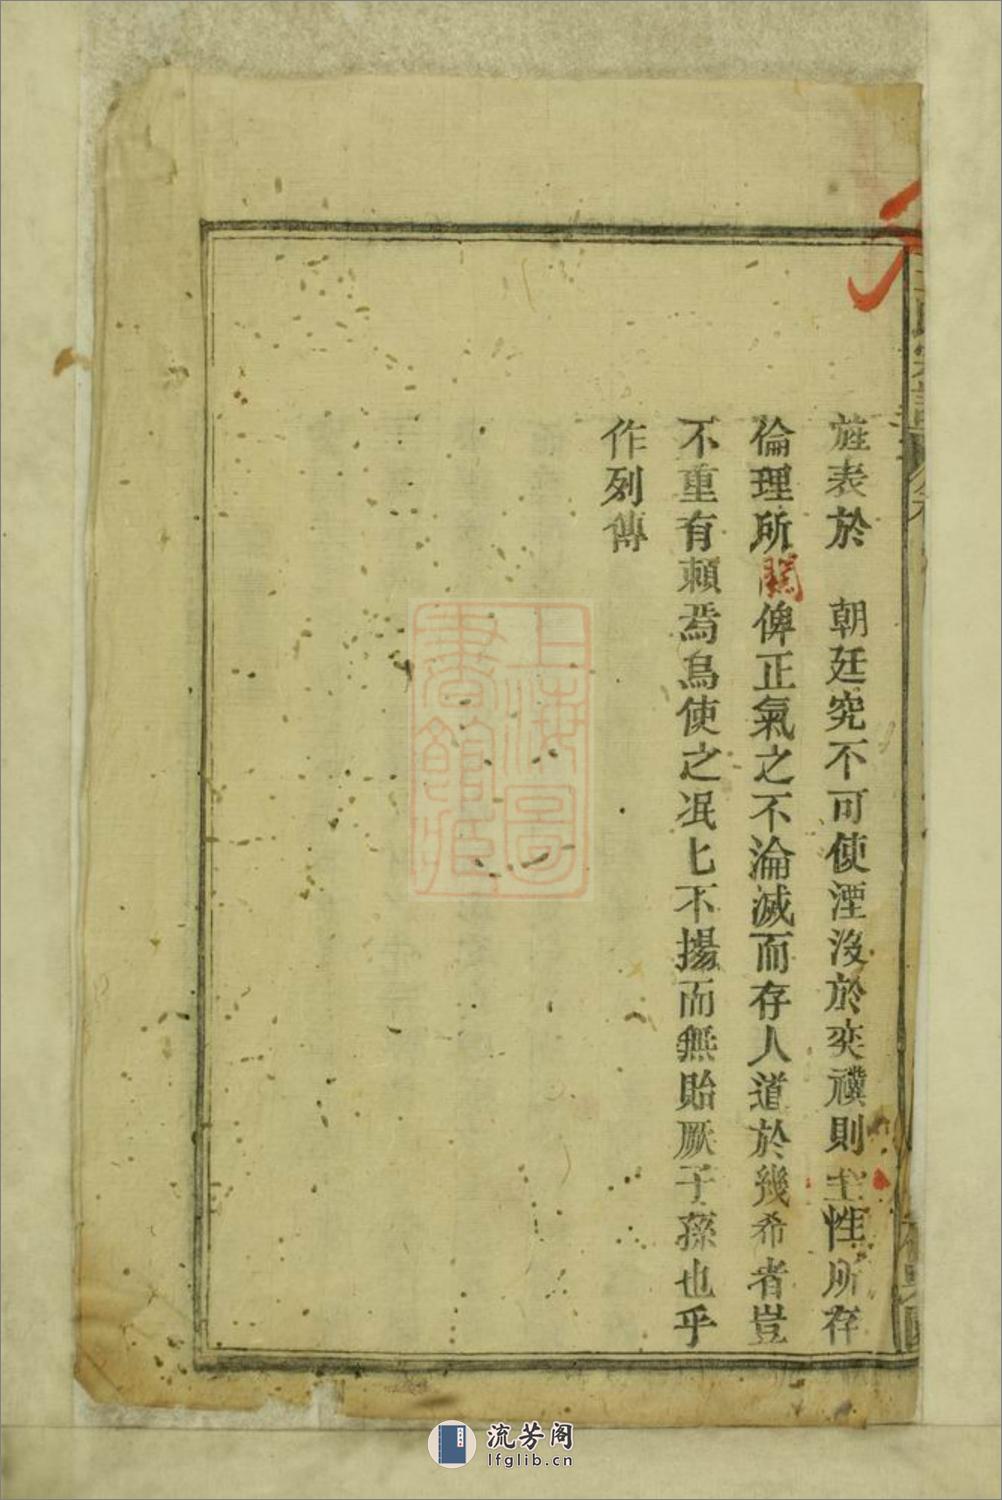 旌表於　朝廷究不可使湮沒於奕禩則至性所存
倫理所關俾正氣之不淪滅而存人道於幾希者豈
不重有頼焉烏使之泯匕不揚而無貽厥子孫也乎
作列傳
上海圖
書館藏
流芳阁
lfglib.cn